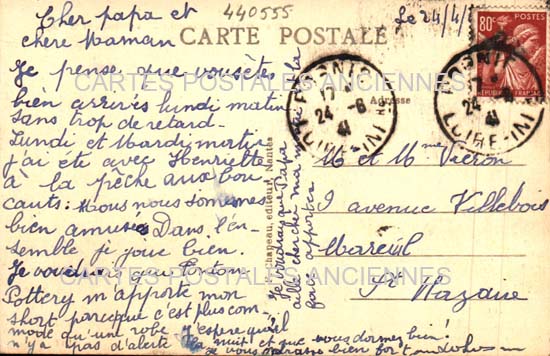 440555
Le 24/4/
Cher papa et
chere Maman
CARTE POSTALE
POSTES
80c
REPUBLIQUE FRANCAISE
PORNIC
17
24 -6
41
LOIRE-INF
PORNIC
24
41
LOIRE-INF
Je pense que vous êtes
bien arrivés lundi matin
sans trop de retard.
Lundi et Mardi matin
j'ai été avec Henriette
à la pêche aux bou
cauts: Nous nous sommes
bien amusés Dans l'en-
semble je joue bien.
Je voudrais que Tonton
Pottery m'apporte mon
short parceque c'est plus com-
mode qu'une robe J'espère qu'il
n'y a pas d'alerte la nuit et que vous dormez bien!
je vous embrasse bien fort
Lulu
Adresse
M et Mme
9 avenue Villebois
Mareuil
St Nazaire
Chapeau, éditeur, Nantes
Je voudrais que Papa
aille chercher ma
CARTES POSTALES ANCIENNES
CARTES POSTALES ANCIENNES